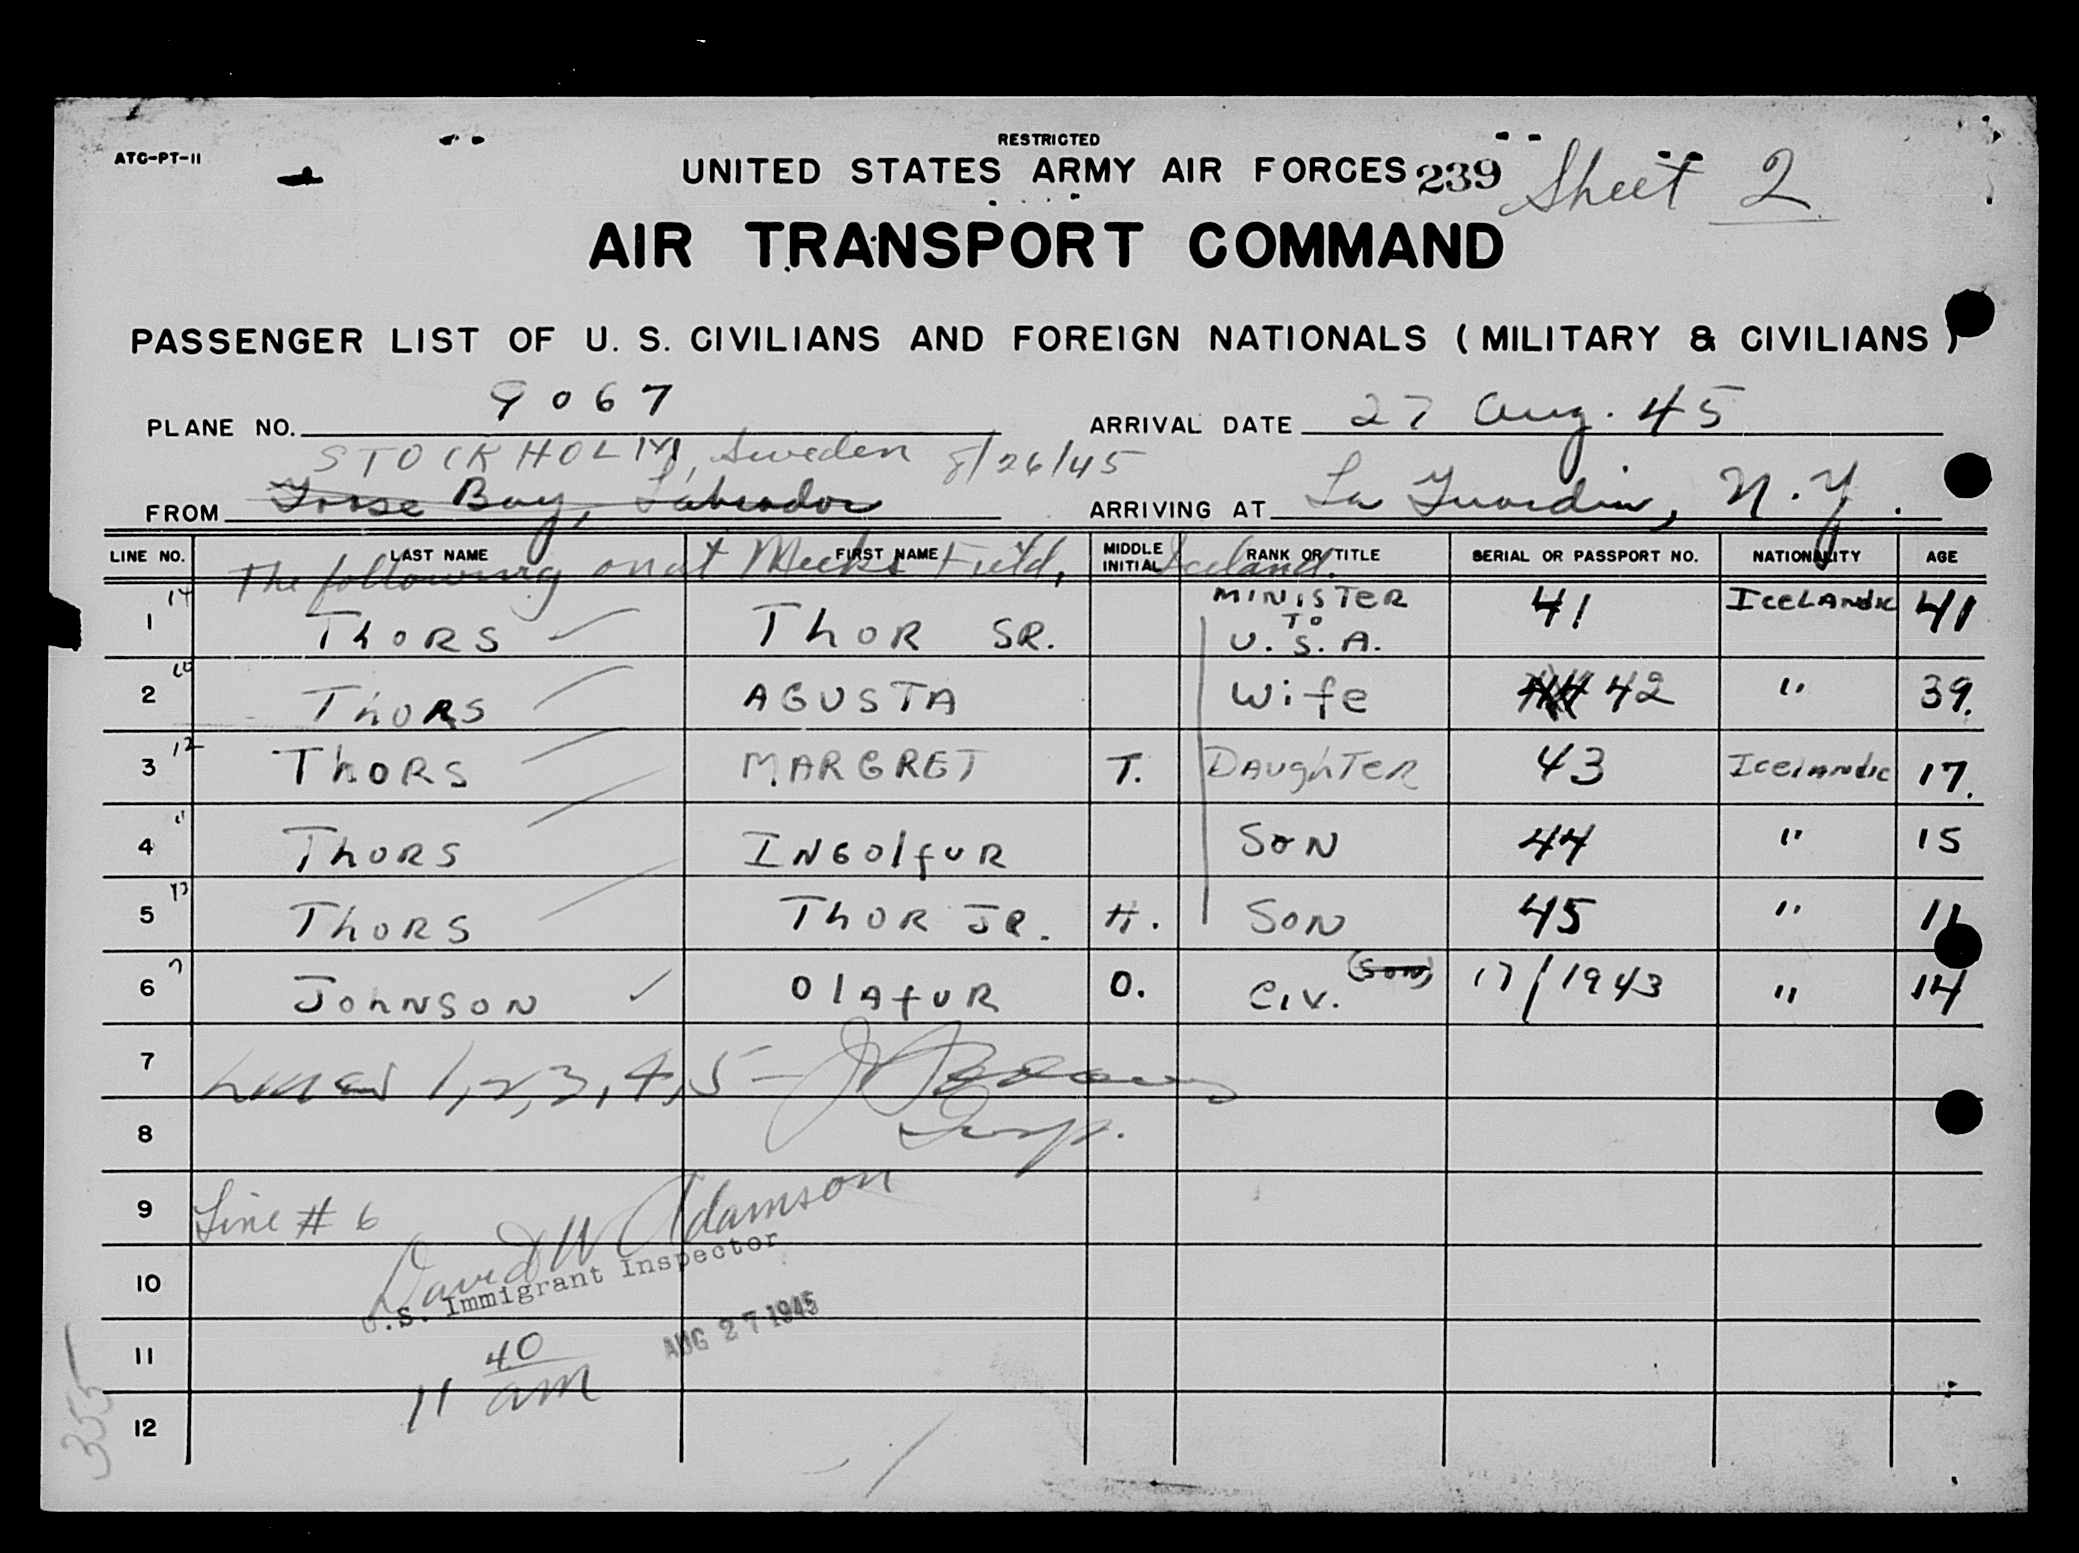 RESTRICTED
ATC-PT-11
UNITED STATES ARMY AIR FORCES 239 Sheet 2
AIR TRANSPORT COMMAND
PASSENGER LIST OF U. S. CIVILIANS AND FOREIGN NATIONALS ( MILITARY & CIVILIANS )
PLANE NO. 9067 ARRIVAL DATE 27 Aug. 45
STOCKHOLM, Sweden 8/26/45
FROM Goose Bay, Labrador ARRIVING AT La Guardia, N.Y.
LINE NO. LAST NAME FIRST NAME MIDDLE INITIAL RANK OR TITLE SERIAL OR PASSPORT NO. NATIONALITY AGE
The following on at Meeks Field, Iceland.
1 14 THORS THOR SR. MINISTER TO U.S.A. 41 ICELANDIC 41
2 THORS AGUSTA Wife 42 " 39.
3 12 THORS MARGRET T. DAUGHTER 43 ICELANDIC 17.
4 11 THORS INGOLFUR SON 44 " 15
5 13 THORS THOR JR. H. SON 45 " 11
6 7 JOHNSON OLAFUR O. CIV. (son) 17/1943 " 14
7 Lines 1,2,3,4,5 -
8 Insp.
9 Line # 6
David W Adamson
10 U.S. Immigrant Inspector
AUG 27 1945
11 11 40 am
12
355